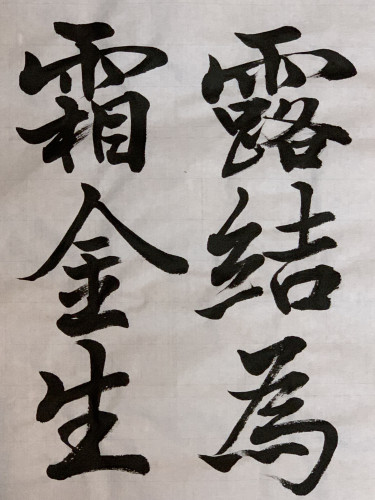 露結為
霜金生